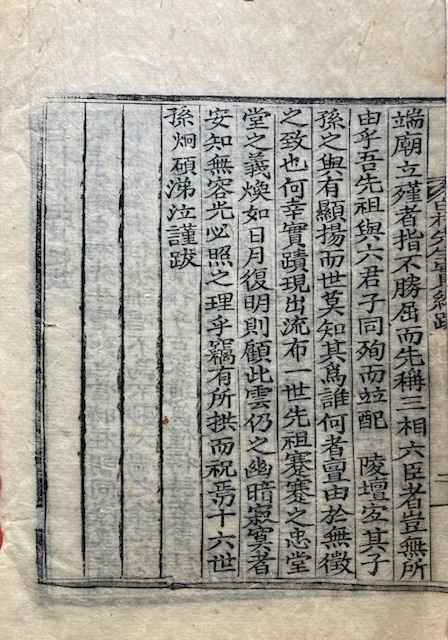 先生實紀跋 二
端廟立殣者指不勝屈而先稱三相六臣者豈無所
由乎吾先祖與六君子同殉而竝配 陵壇宜其子
孫之與有顯揚而世莫知其爲誰何者亶由於無徵
之致也何幸實蹟現出流布一世先祖蹇蹇之忠堂
堂之義煥如日月復明則顧此雲仍之幽暗寂寞者
安知無容光必照之理乎竊有所拱而祝焉十六世
孫炯碩涕泣謹跋